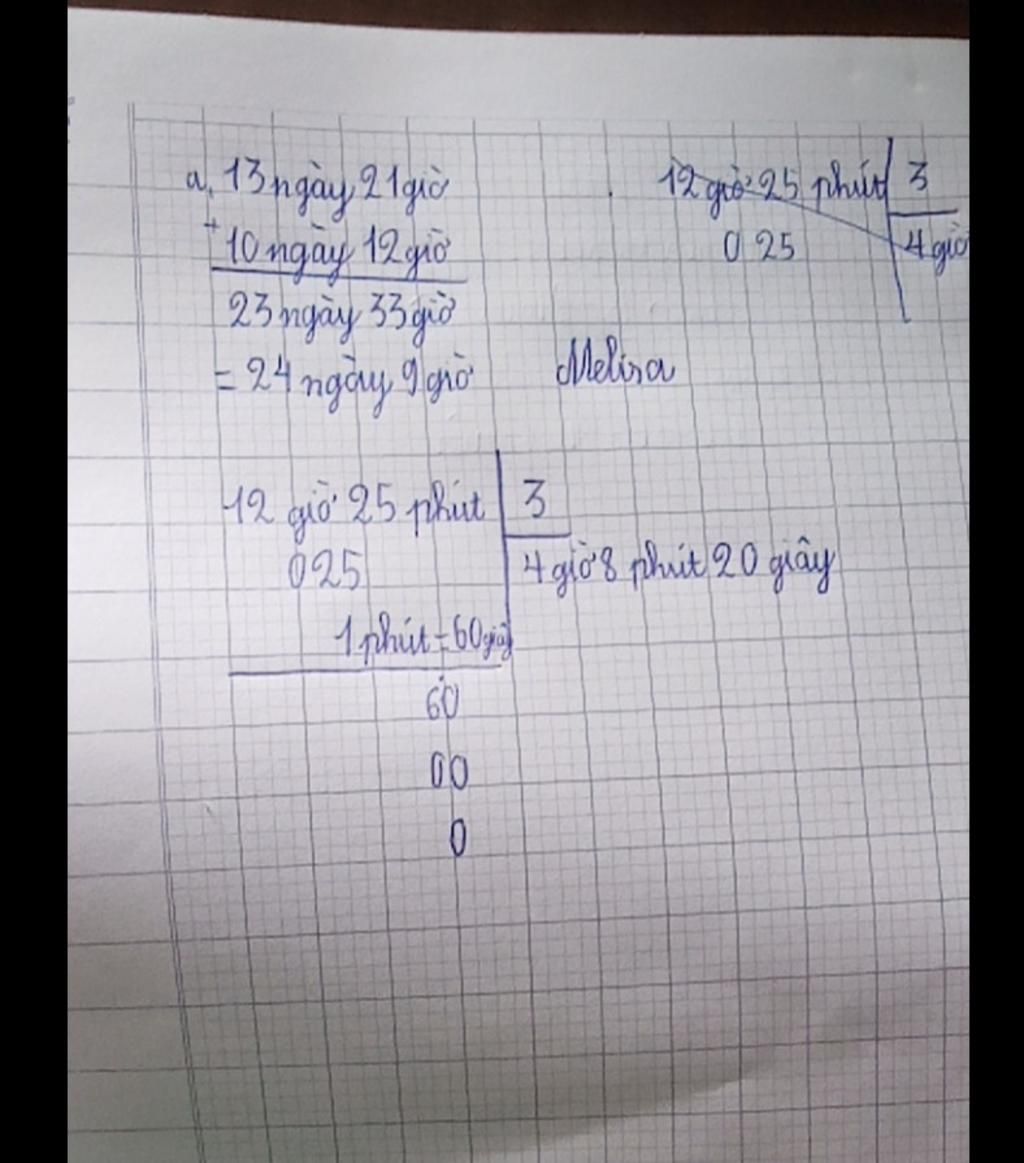 a, 13 ngày 21 giờ
+
10 ngày 12 giờ
23 ngày 33 giờ
= 24 ngày 9 giờ
12 giờ 25 phút 3
0 25 4 giờ
Melisa
12 giờ 25 phút 3
025 4 giờ 8 phút 20 giây
1 phút = 60 giây
60
00
0